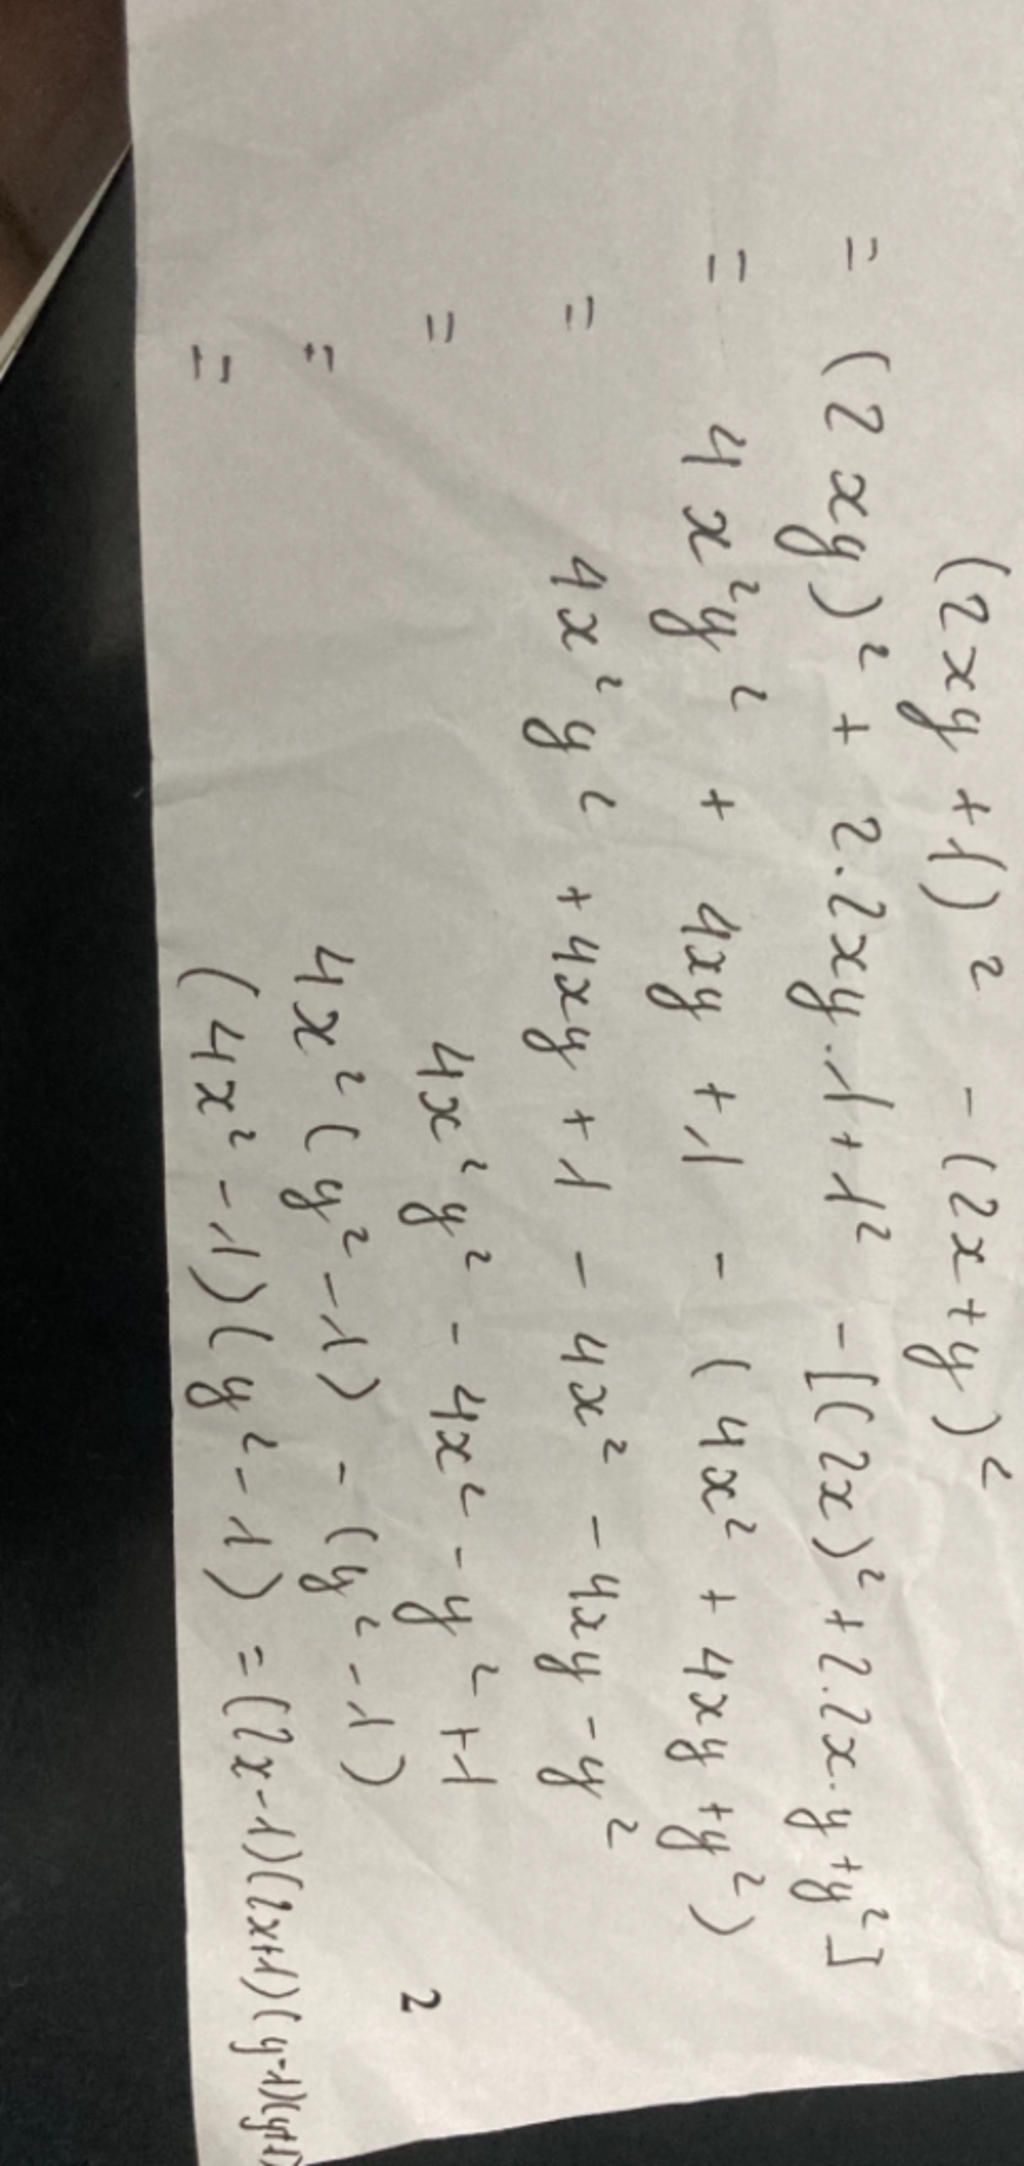 (2xy + 1)² - (2x + y)²
= (2xy)² + 2.2xy.1 + 1² - [(2x)² + 2.2x.y + y²]
= 4x²y² + 4xy + 1 - (4x² + 4xy + y²)
= 4x²y² + 4xy + 1 - 4x² - 4xy - y²
= 4x²y² - 4x² - y² + 1
= 4x²(y² - 1) - (y² - 1)
= (4x² - 1)(y² - 1) = (2x - 1)(2x + 1)(y - 1)(y + 1)
2